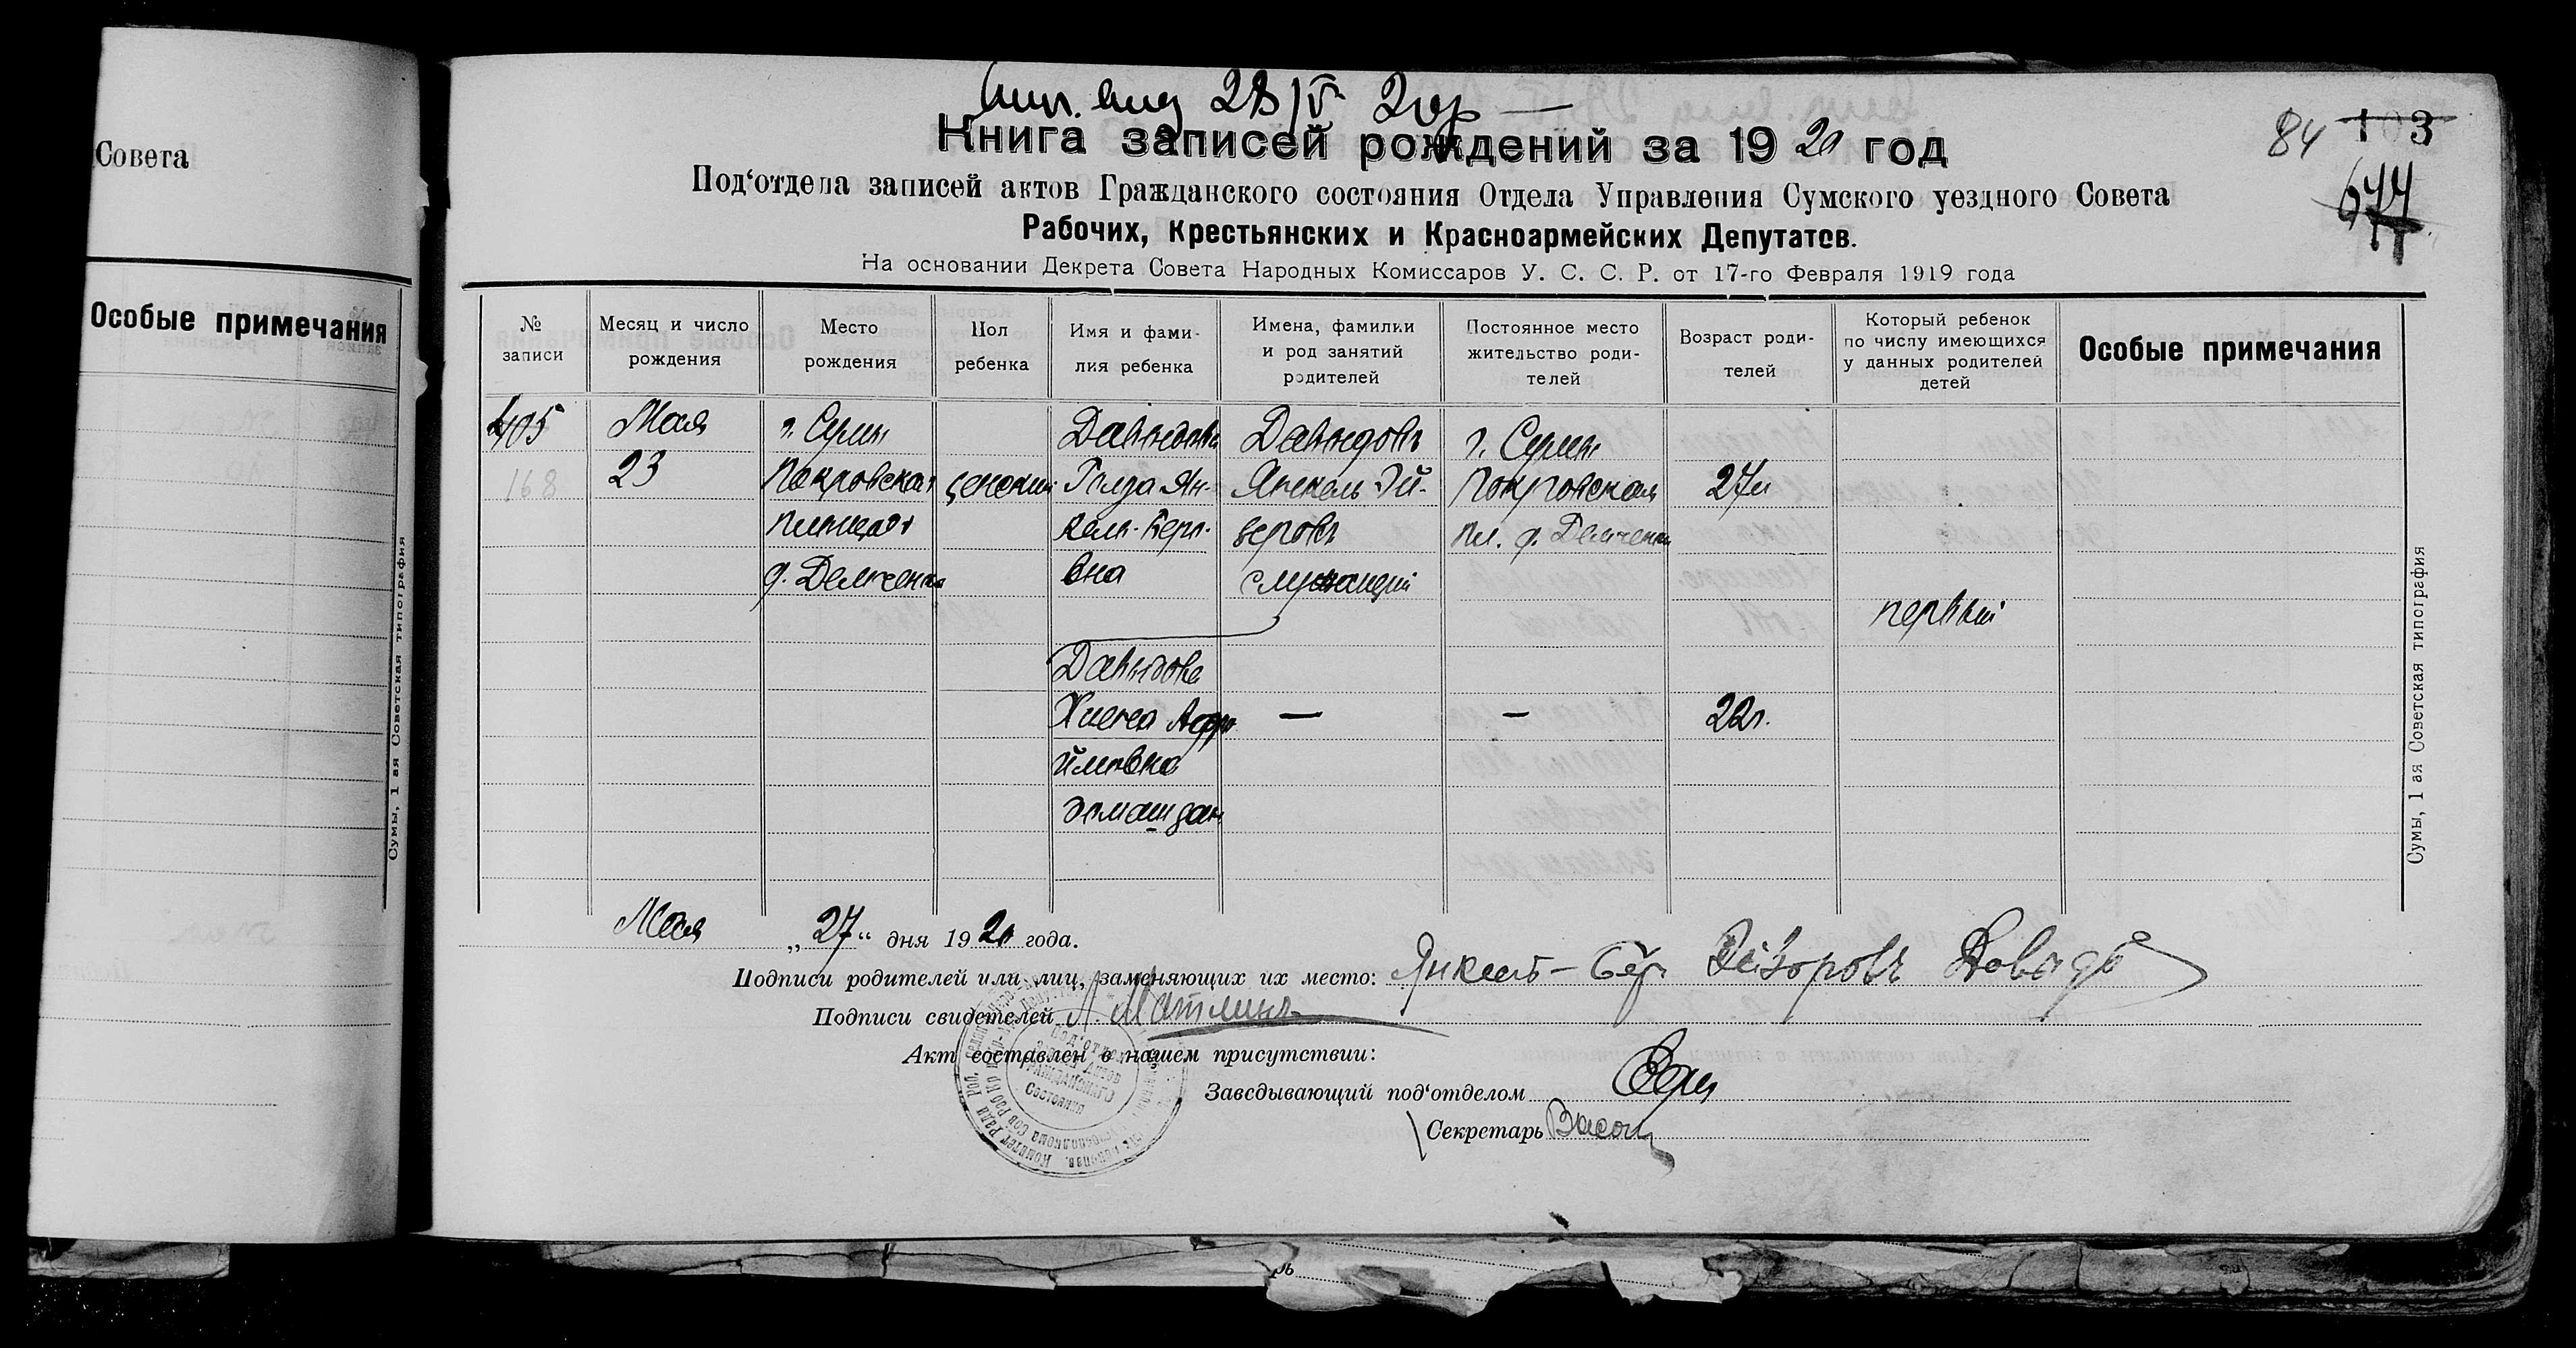 Совета
Особые примечания
Сумы, 1 ая Советская типография
28/V 20
Книга записей рождений за 1920 год
84 103
644
Под‘отдела записей актов Гражданского состояния Отдела Управления Сумского уездного Совета
Рабочих, Крестьянских и Красноармейских Депутатов.
На основании Декрета Совета Народных Комиссаров У. С. С. Р. от 17-го Февраля 1919 года
№ записи
Месяц и число рождения
Место рождения
Пол ребенка
Имя и фами-
лия ребенка
Имена, фамилии
и род занятий
родителей
Постоянное место
жительство роди-
телей
Возраст роди-
телей
Который ребенок
по числу имеющихся
у данных родителей
детей
Особые примечания
405
168
Мая
23
г. Сумы
Покровская
площадь
д. Демченка
женский
Давыдова
Голда Ян-
кель-Бери-
вна
Давыдовъ
Янкель Эй-
зеровъ
служащий
г. Сумы
Покровская
пл. д. Демченка
27л
первый
Давыдова
—
—
22л.
Мая „27“ дня 1920 года.
Подписи родителей или лиц, заменяющих их место: Янкель-Бер Давыдо
Подписи свидетелей Матлинъ
Акт составлен в нашем присутствии:
Заведывающий под‘отделом
Секретарь
Сумы, 1 ая Советская типография